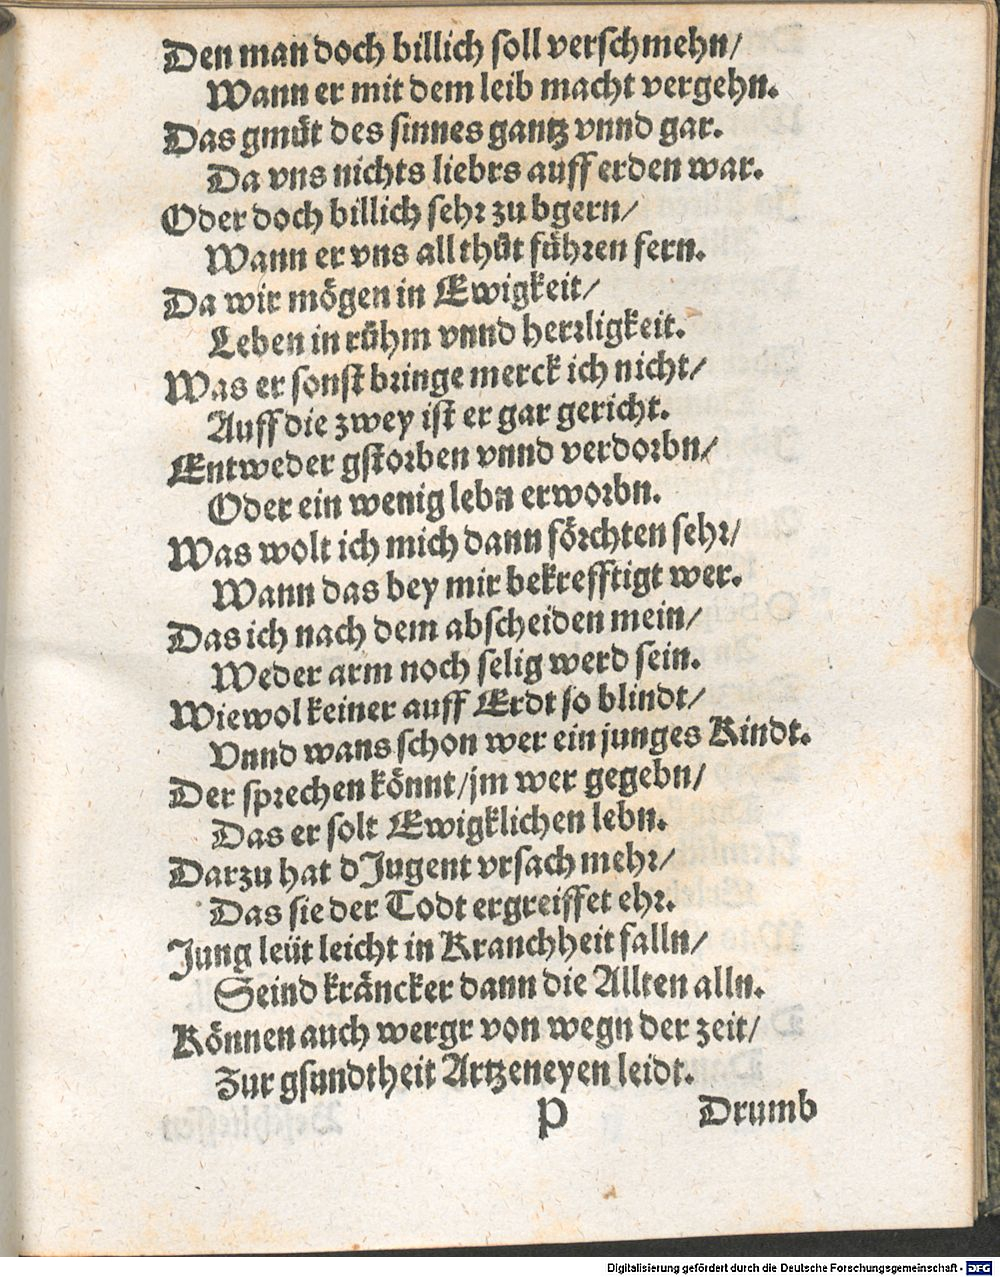 Den man doch billich soll verschmehn/
Wann er mit dem leib macht vergehn.
Das gmüt des sinnes gantz vnnd gar.
Da vns nichts liebrs auff erden war.
Oder doch billich sehr zu bgern/
Wann er vns all thůt führen fern.
Da wir mögen in Ewigkeit/
Leben in růhm vnnd herrligkeit.
Was er sonst bringe merck ich nicht/
Auff die zwey ist er gar gericht.
Entweder gstorben vnnd verdorbn/
Oder ein wenig lebn erworbn.
Was wolt ich mich dann förchten sehr/
Wann das bey mir bekrefftigt wer.
Das ich nach dem abscheiden mein/
Weder arm noch selig werd sein.
Wiewol keiner auff Erdt so blindt/
Vnnd wans schon wer ein junges Kindt.
Der sprechen könnt/jm wer gegebn/
Das er solt Ewigklichen lebn.
Darzu hat d'Jugent vrsach mehr/
Das sie der Todt ergreiffet ehr.
Jung leüt leicht in Kranchheit falln/
Seind kräncker dann die Allten alln.
Können auch wergr von wegn der zeit/
Zur gsundtheit Artzeneyen leidt.
P Drumb
Digitalisierung gefördert durch die Deutsche Forschungsgemeinschaft - DFG